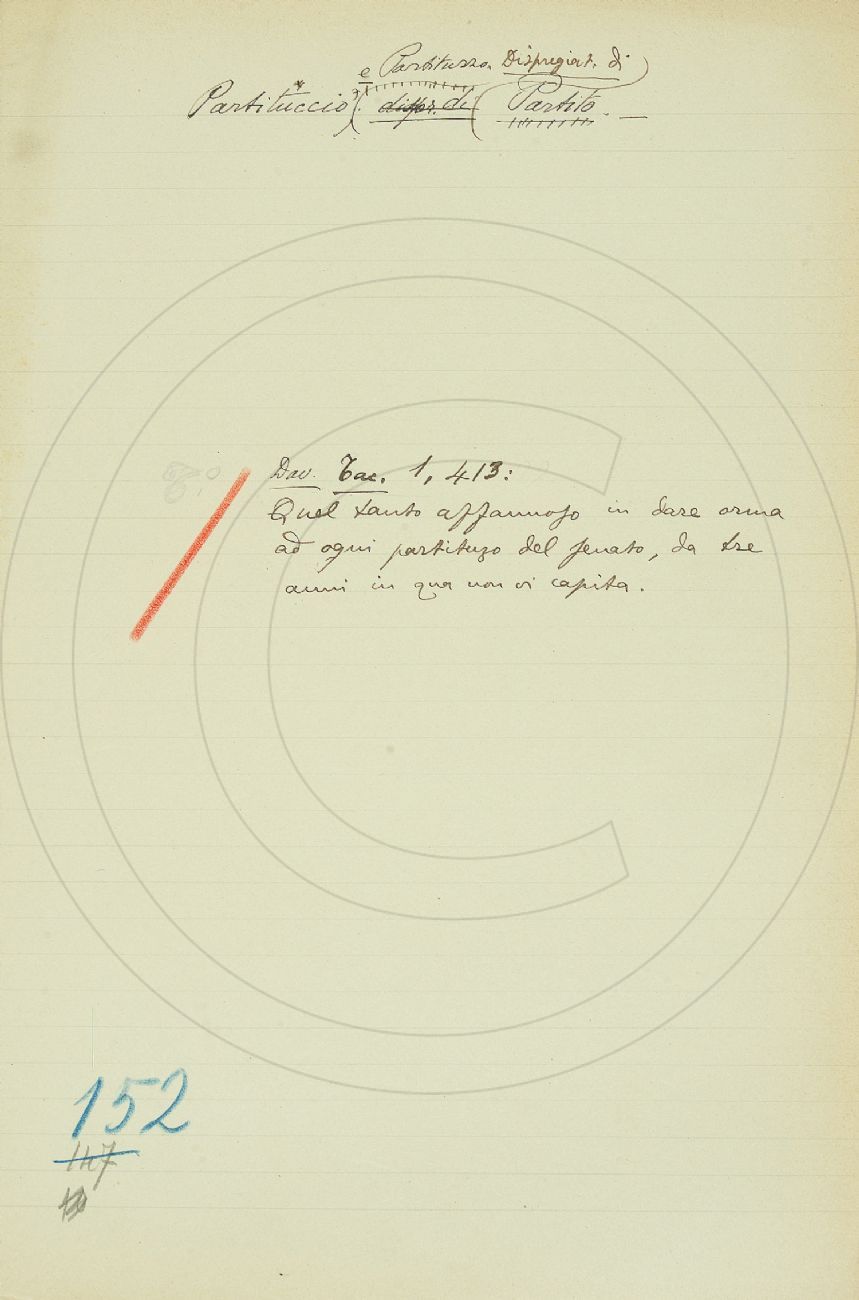 e Partituzzo. Dispregiat. di
Partituccio. dispr. di Partito. —
Dav. Tac. 1, 413:
Quel tanto affannoso in dare orma
ad ogni partituzo del senato, da tre
anni in qua non vi capita.
152
147